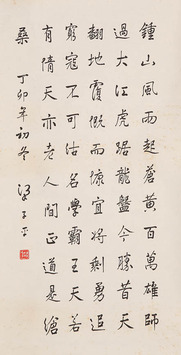 鍾山風雨起蒼黃百萬雄師
過大江虎踞龍盤今勝昔天
翻地覆慨而慷宜將剩勇追
窮寇不可沽名學霸王天若
有情天亦老人間正道是滄
桑 丁卯年初冬 梁